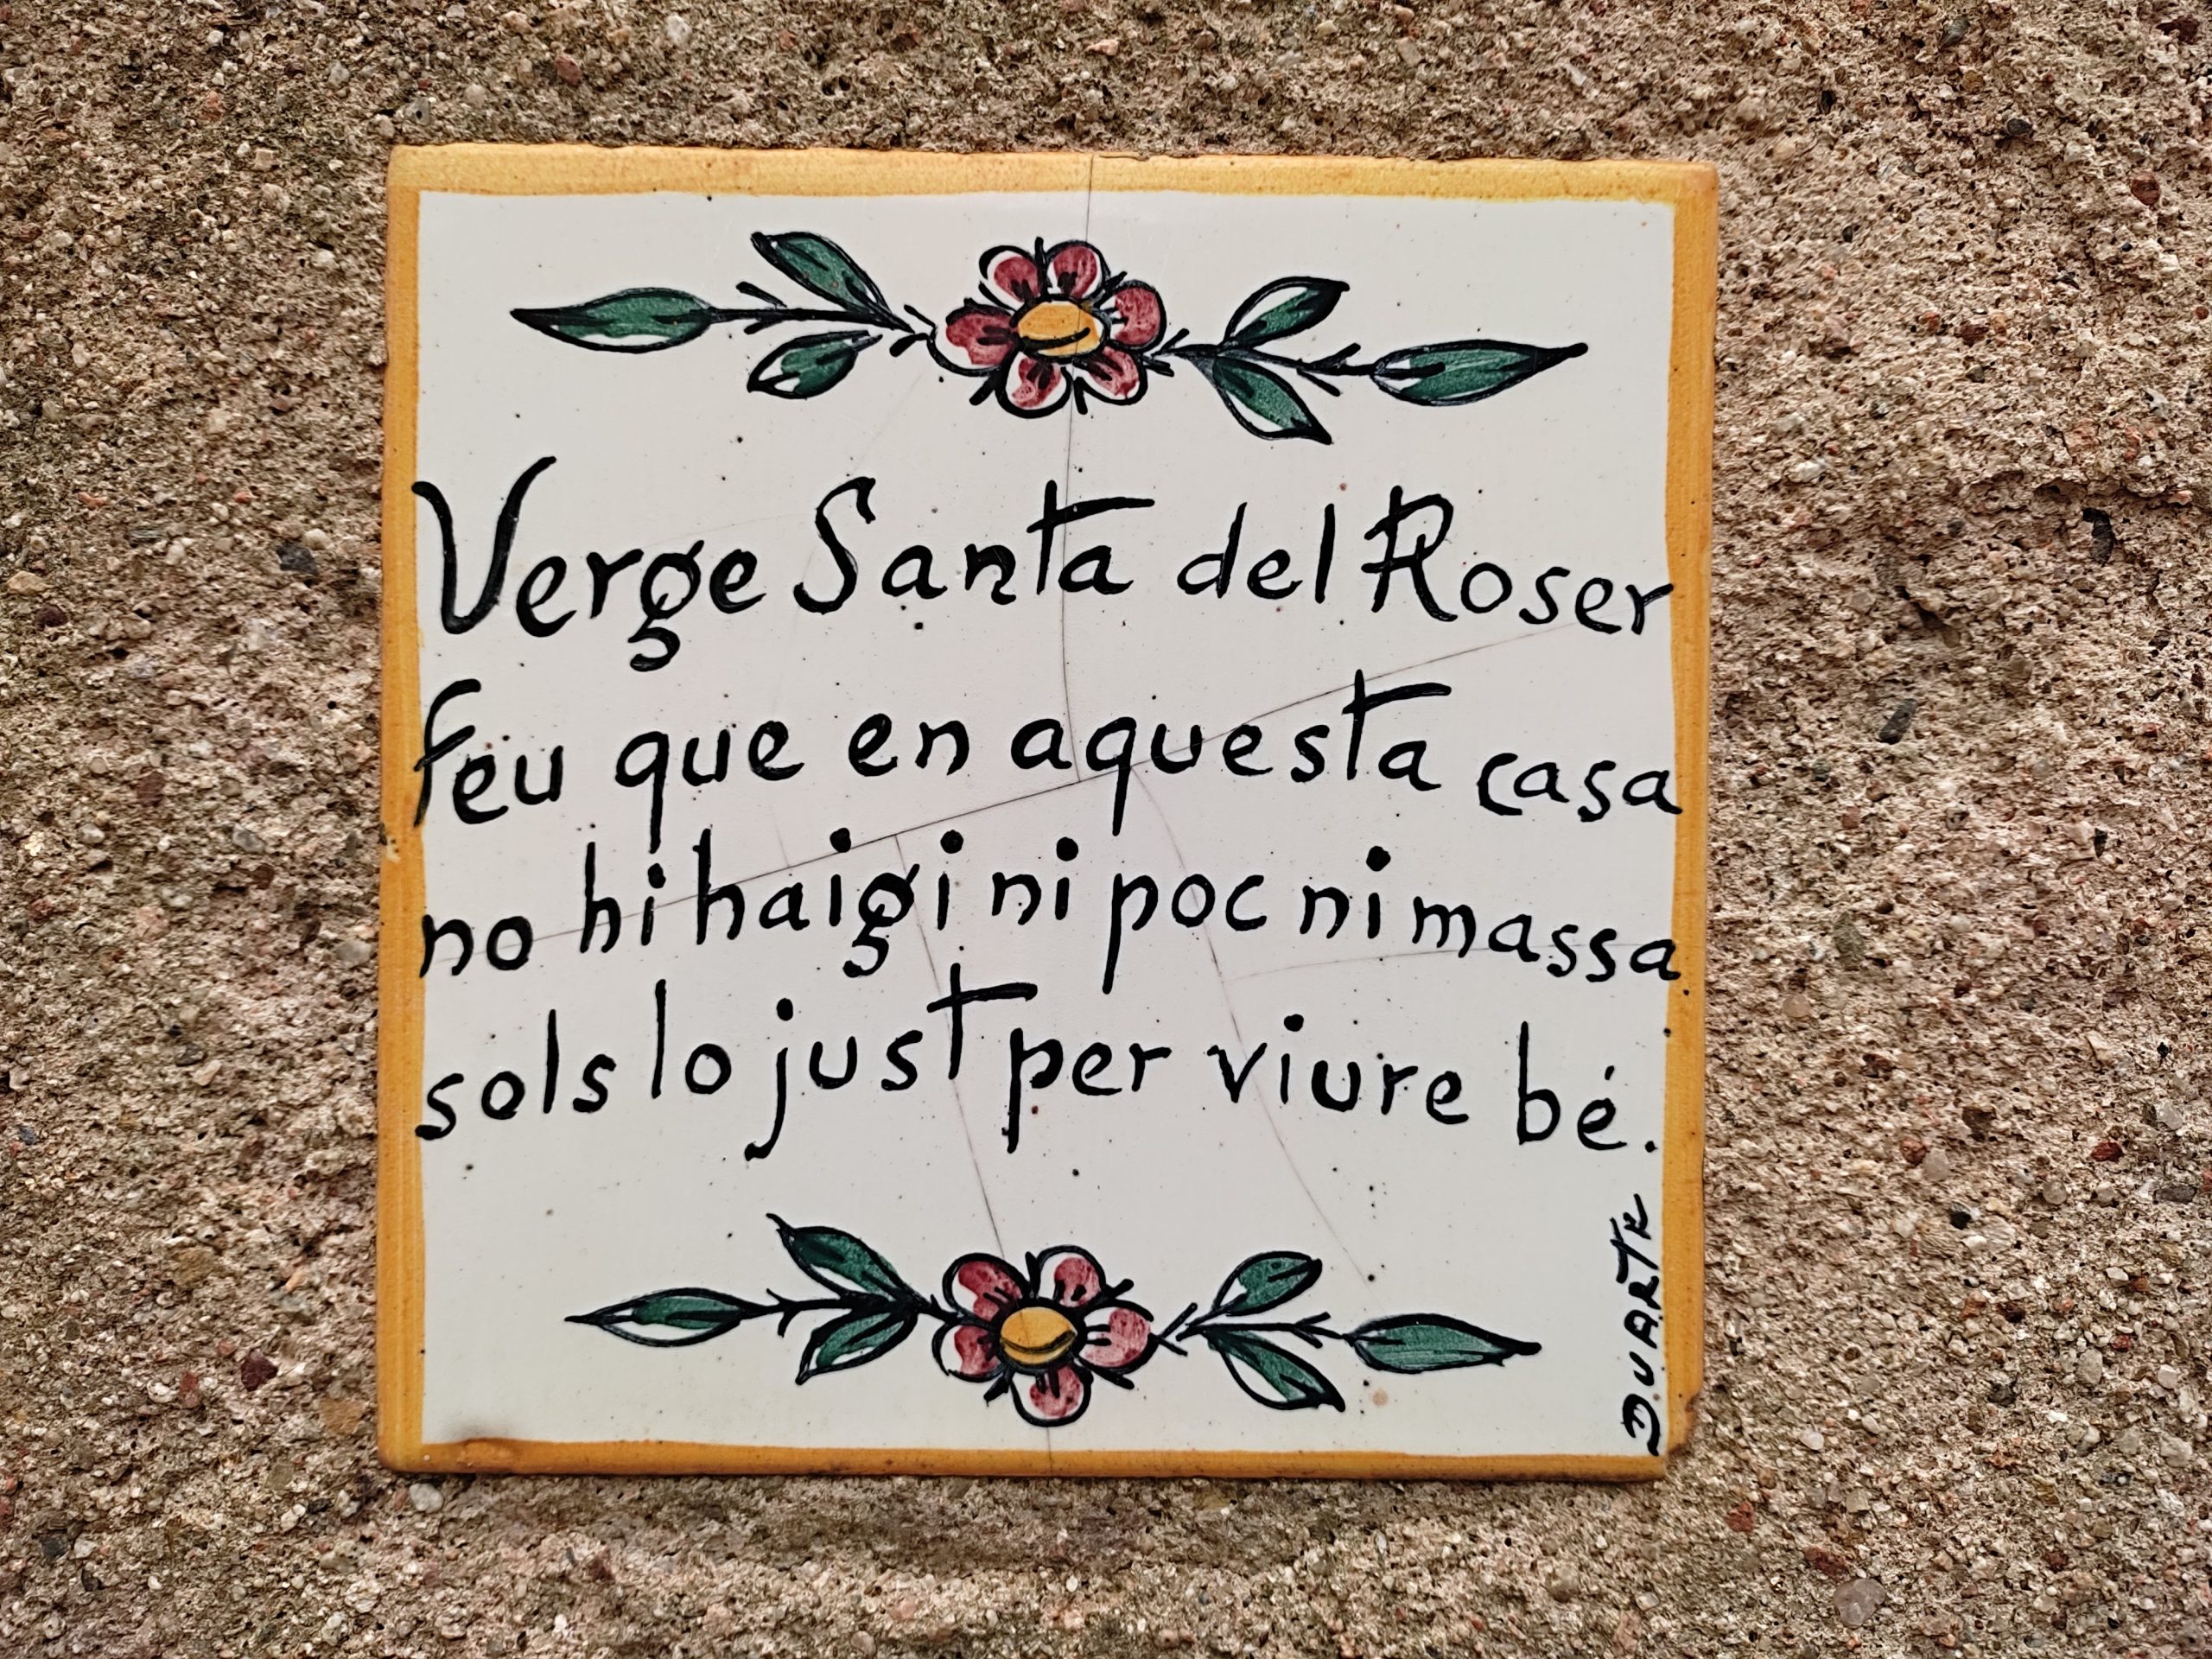 Verge Santa del Roser
feu que en aquesta casa
no hi haigi ni poc ni massa
sols lo just per viure bé.
DUARTE